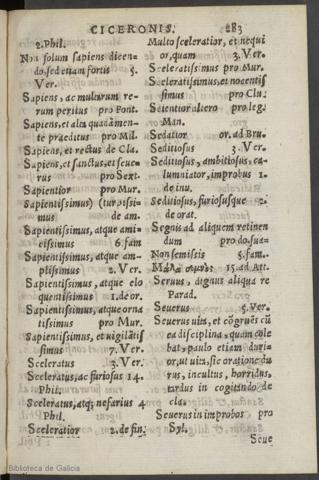 CICERONIS. 283
2. Phil.
Non solum sapiens dicen-
do, sed etiam fortis 5.
Ver.
Sapiens, ac multarum re-
rum peritus pro Font.
Sapiens, et alta quadāmen-
te praeditus pro Mil.
Sapiens, et rectus de Cla.
Sapiens, et sanctus, et seue-
rus pro Sext.
Sapientior pro Mur.
Sapientissimus) (turpissi-
mus de am.
Sapientissimus, atque ami-
cissimus 6. fam
Sapientissimus, atque am-
plissimus 2. Ver.
Sapientissimus, atque elo
quentissimus 1. de or.
Sapientissimus, atque orna
tissimus pro Mur.
Sapientissimus, et uigilātis
simus 7. Ver.
Sceleratus 3. Ver.
Sceleratus, ac furiosus 14.
Phil.
Sceleratus, atq; nefarius 4
Phil.
Sceleratior 2. de fin.
Multo sceleratior, et nequi
or, quam 3. Ver.
Sceleratissimus pro Mur.
Sceleratissimus, et nocentis
simus pro Clu.
Scientior altero pro leg.
Man.
Sedatior or. ad Bru.
Seditiosus 3. Ver.
Seditiosus, ambitiosus, ca-
lumniator, improbus 1.
de inu.
Seditiosus, furiosusque 2.
de orat.
Segnis ad aliquem retinen
dum pro do. sua.
Non semissis 5. fam.
15. ad Att.
Seruus, dignus aliqua re
Parad.
Seuerus 5. Ver.
Seuerus uita, et cōgruēs cū
ea disciplina, quam cole
bat, paulo etiam duri-
or, ut uita, sic oratione du
rus, incultus, horridus,
tardus in cogitando de
cla.
Seuerus in improbos pro
Syl.
Seue
Biblioteca de Galicia